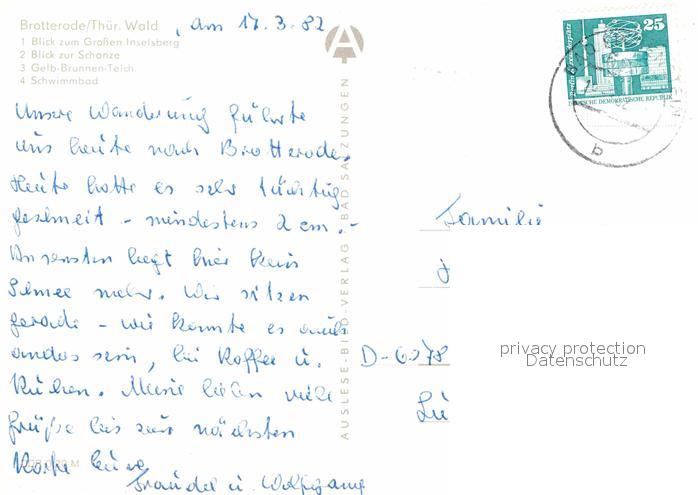 Brotterode/Thür. Wald
, am 17.3.82
1 Blick zum Großen Inselsberg
2 Blick zur Schanze
3 Gelb-Brunnen-Teich
4 Schwimmbad
Unsere Wanderung führte
uns heute nach Brotterode.
Heute hatte es sehr tüchtig
geschneit - mindestens 2 cm. -
Ansonsten liegt hier kein
Schnee mehr. Wir sitzen
gerade - wie könnte es auch
anders sein, bei Kaffee u.
Kuchen. Meine lieben viele
Grüße bis zur nächsten
Karte eure
Traudel u. Wolfgang
AUSLESE-BILD-VERLAG · BAD SALZUNGEN
25
DEUTSCHE DEMOKRATISCHE REPUBLIK
BAD
b
Familie
D-6078
privacy protection
Datenschutz